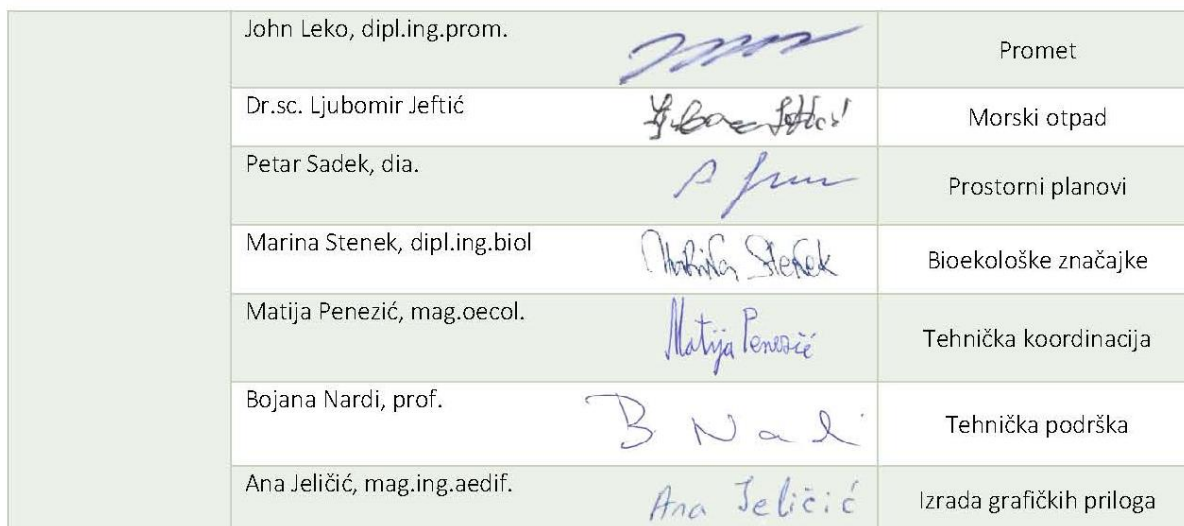 John Leko, dipl.ing.prom.
Promet
Dr.sc. Ljubomir Jeftić
Morski otpad
Petar Sadek, dia.
Prostorni planovi
Marina Stenek, dipl.ing.biol
Marina Stenek
Bioekološke značajke
Matija Penezić, mag.oecol.
Matija Penezić
Tehnička koordinacija
Bojana Nardi, prof.
B Nardi
Tehnička podrška
Ana Jeličić, mag.ing.aedif.
Ana Jeličić
Izrada grafičkih priloga